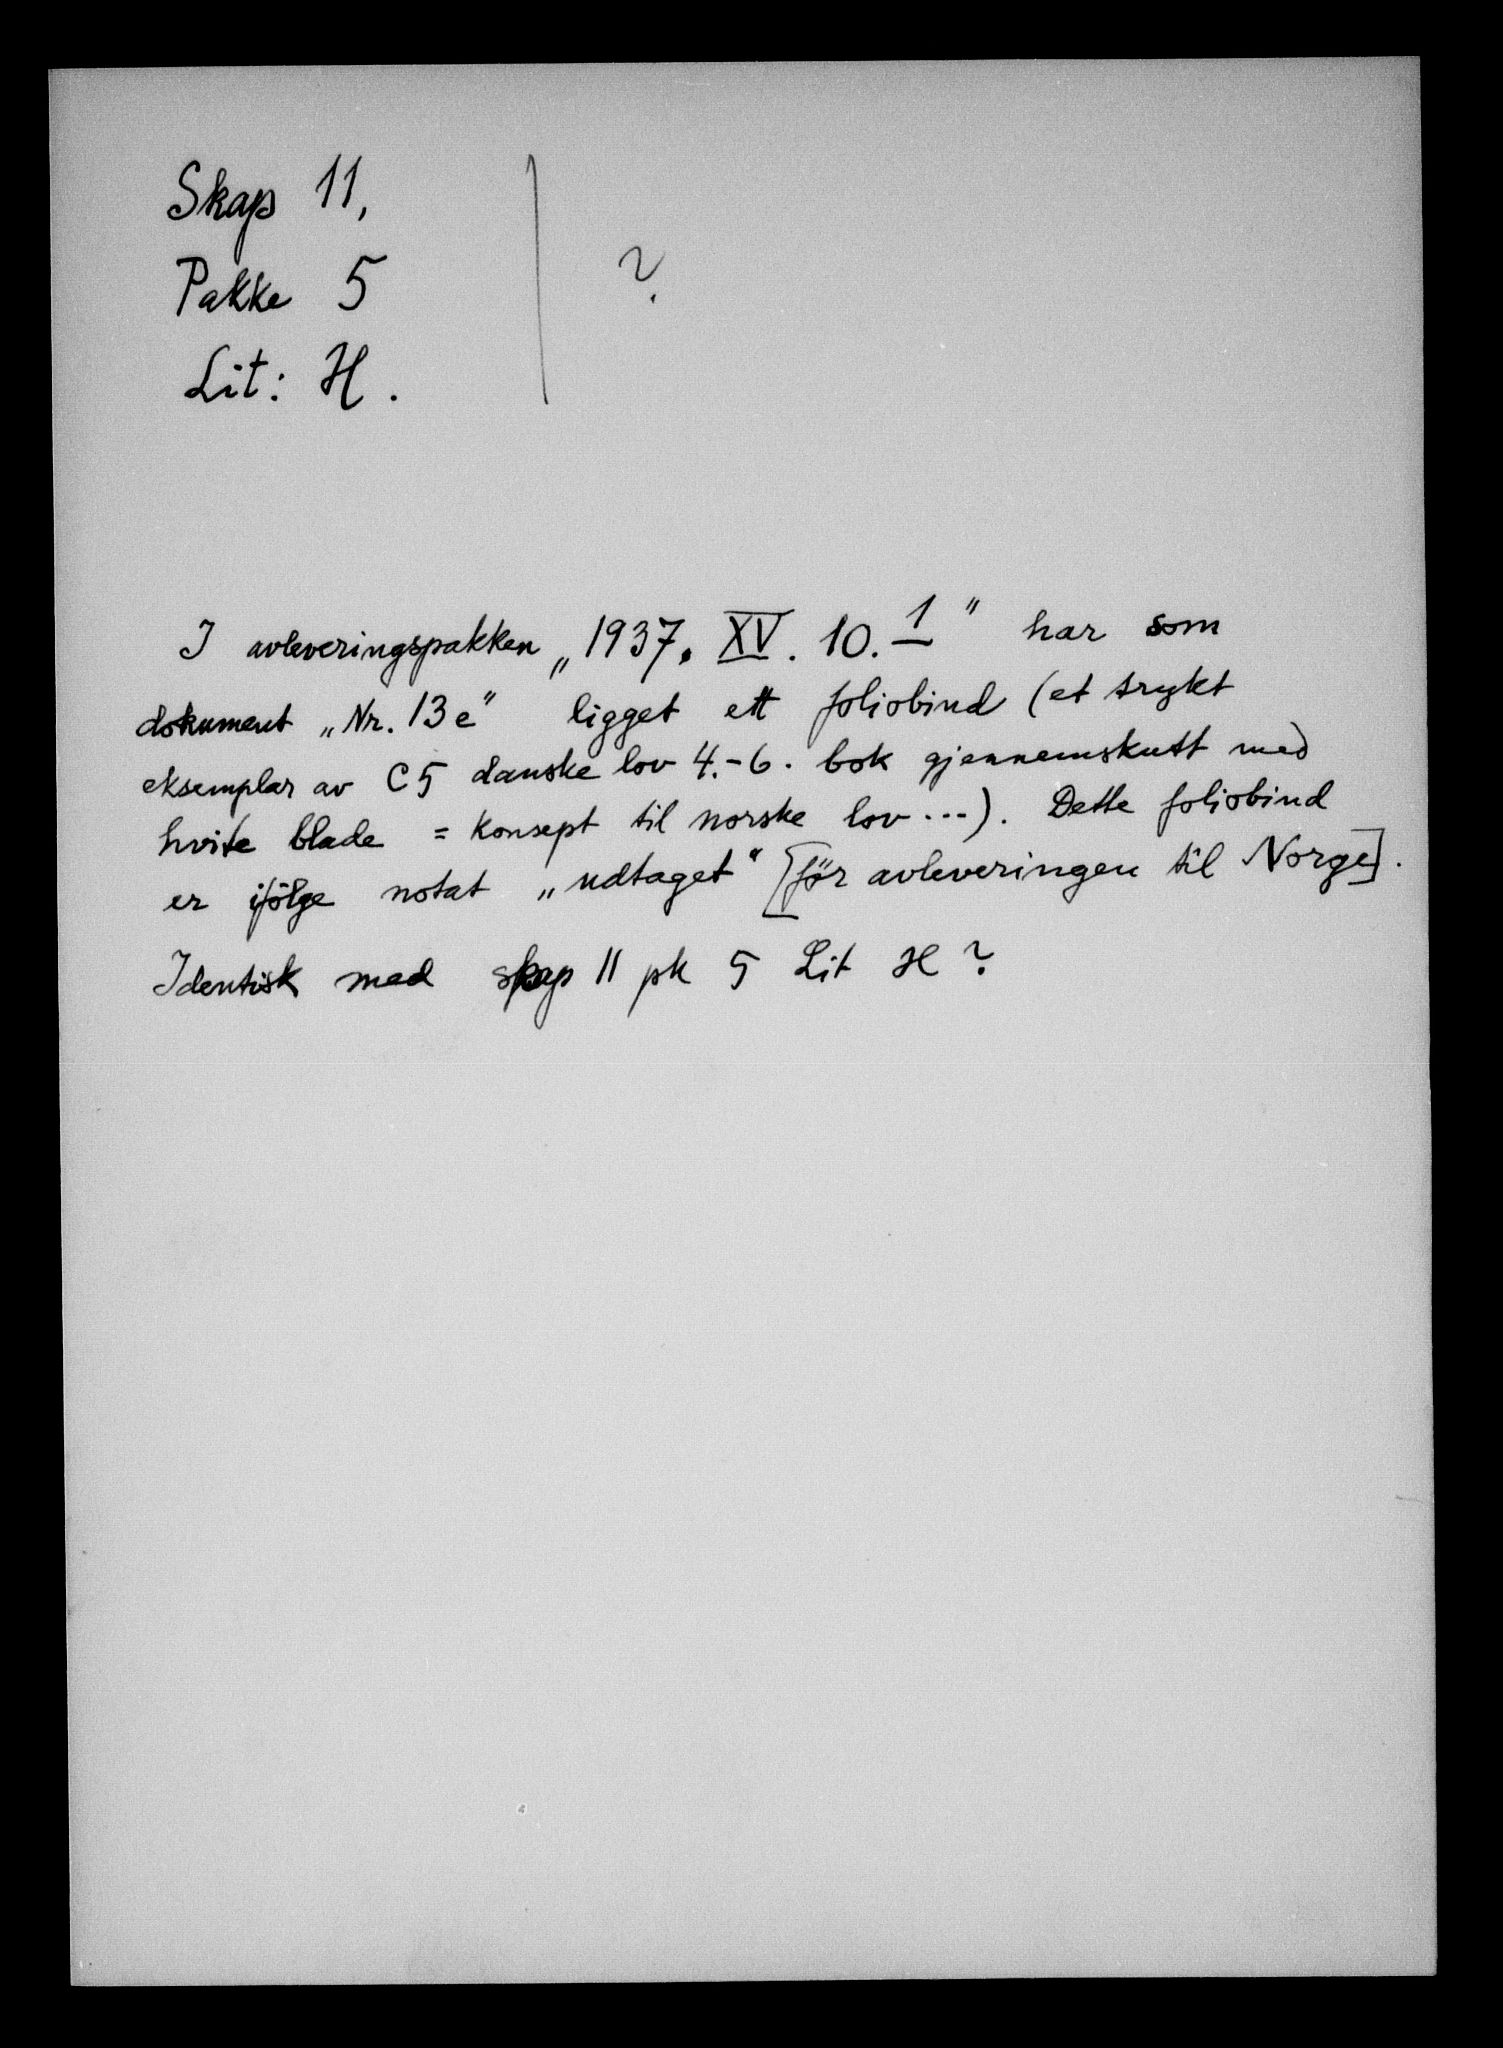 Skap 11,
Pakke 5 ?
Lit: H.
I avleveringspakken „1937. XV. 10. 1" har som
dokument „Nr. 13 e" ligget ett foliobind (et trykt
eksemplar av C5 danske lov 4.-6. bok gjennemskutt med
hvite blade = konsept til norske lov...). Dette foliobind
er ifölge notat „udtaget" [för avleveringen til Norge].
Identisk med skap 11 pk 5 Lit H ?